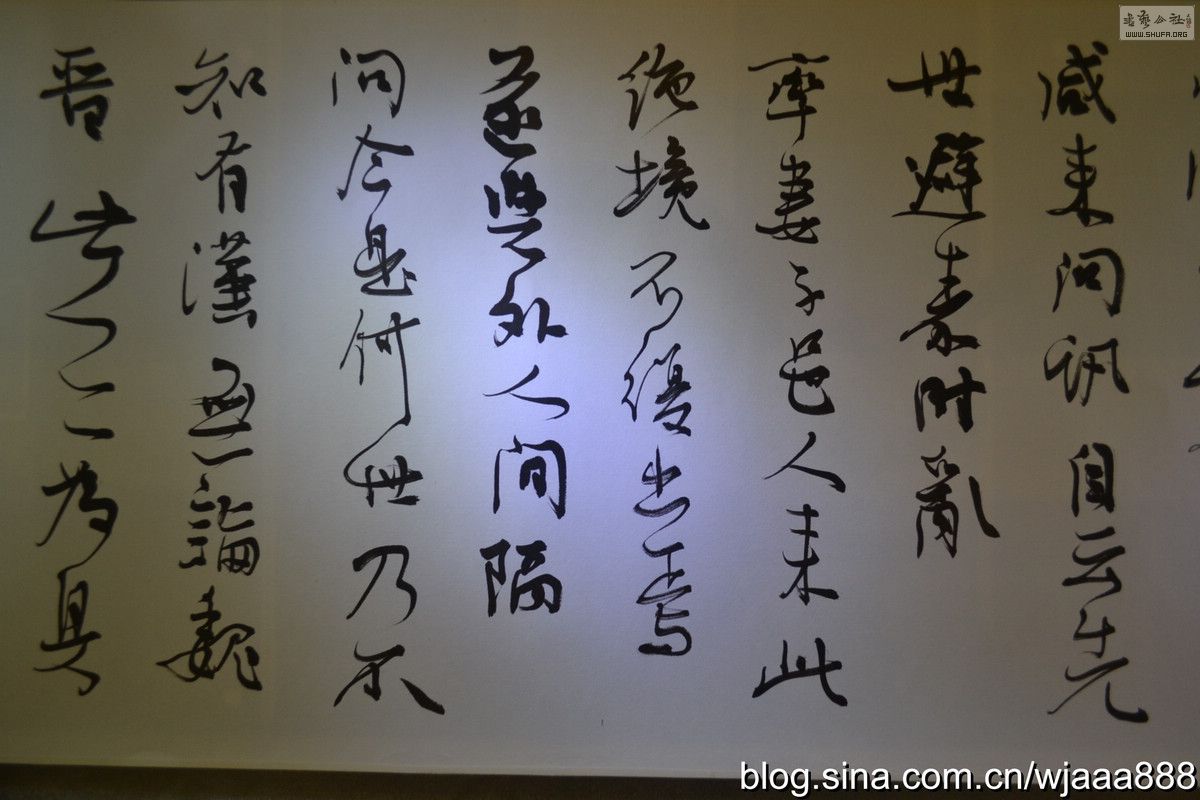 咸来問訊自云先
世避秦時亂
率妻子邑人来此
絶境不復出焉
遂與外人間隔
問今是何世乃不
知有漢無論魏
晋此人一一為具
書藝公社
WWW.SHUFA.ORG
blog.sina.com.cn/wjaaa888